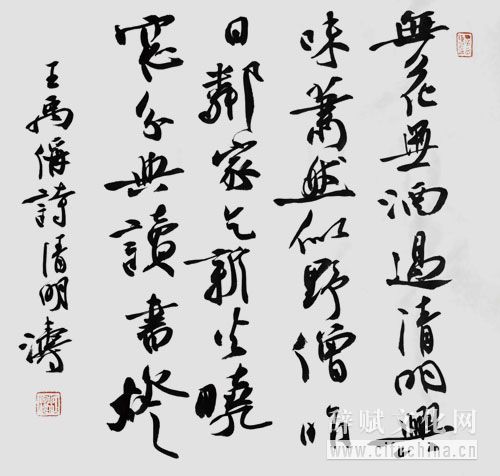 無花無酒過清明興
味蕭然似野僧昨
日鄰家乞新火曉
窓分與讀書燈
王禹偁詩清明 濤
辞赋文化网
www.cifuchina.com